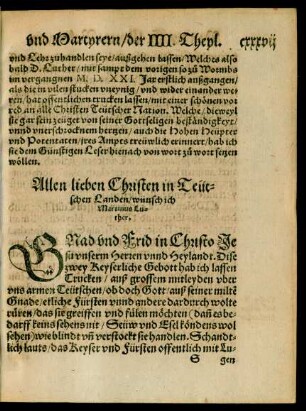 vnd Martyrern/der IIII. Theyl. cxxxvij
vnd Lehr zuhandlen seye/außgehen lassen/Welches also
bald D. Luther/mit sampt dem vorigen so zů Wormbs
im vergangnen M. D. XXI. Jar erstlich außgangen/
als die in vilen stucken vneynig/vnd wider einander we
ren/hat offentlichen trucken lassen/mit einer schönen vor
red an alle Christen Teütscher Nation. Welche/dieweyl
sie gar sein zeüget von seiner Gottseligen bestådigkeyt/
vnnd vnerschrocknem hertzen/auch die Hohen Heupter
vnd Potentaten/jres Ampts trewlich erinnert/hab ich
sie dem Günstigen Leser hienach von wort zu wort setzen
wöllen.
Allen lieben Christen in Teüt-
schen Landen/wünsch ich
Martinus Lu-
ther,
GNad vnd Frid in Christo Je
su vnserm Herren vnnd Heylandt. Dise
zwey Keyserliche Gebott hab ich lassen
Trucken/auß grossem mitleyden vber
vns armen Teütschen/ob doch Gott/auß seiner mild
Gnade/etliche Fürsten vnnd andere dardurch wolte
rüren/das sie greiffen vnd fülen möchten (dañ es be-
darff keins sehens nit/Seüw vnd Esel köndens wol
sehen) wie blindt vñ verstockt sie handlen. Schandt-
lich lauts/das Keyser vnd Fürsten offentlich mit Lu-
S gen